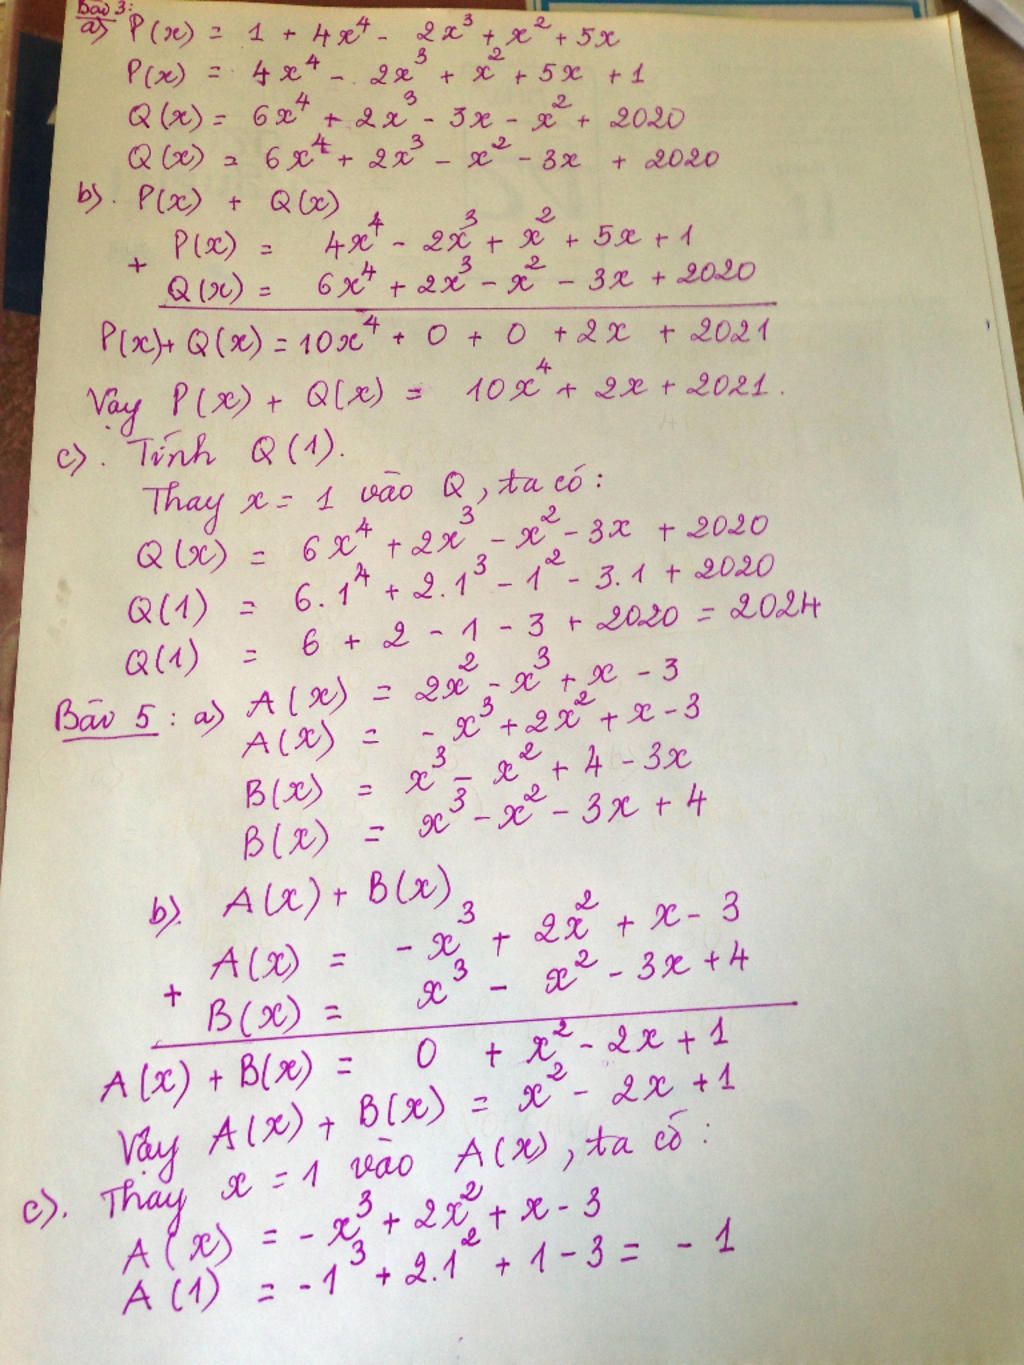 Bài 3:
a) P(x) = 1 + 4x⁴ - 2x³ + x² + 5x
P(x) = 4x⁴ - 2x³ + x² + 5x + 1
Q(x) = 6x⁴ + 2x³ - 3x - x² + 2020
Q(x) = 6x⁴ + 2x³ - x² - 3x + 2020
b). P(x) + Q(x)
P(x) = 4x⁴ - 2x³ + x² + 5x + 1
+
Q(x) = 6x⁴ + 2x³ - x² - 3x + 2020
P(x) + Q(x) = 10x⁴ + 0 + 0 + 2x + 2021
Vậy P(x) + Q(x) = 10x⁴ + 2x + 2021.
c). Tính Q(1).
Thay x = 1 vào Q, ta có:
Q(x) = 6x⁴ + 2x³ - x² - 3x + 2020
Q(1) = 6.1⁴ + 2.1³ - 1² - 3.1 + 2020
Q(1) = 6 + 2 - 1 - 3 + 2020 = 2024
Bài 5: a) A(x) = 2x² - x³ + x - 3
A(x) = - x³ + 2x² + x - 3
B(x) = x³ - x² + 4 - 3x
B(x) = x³ - x² - 3x + 4
b). A(x) + B(x)
A(x) = - x³ + 2x² + x - 3
+
B(x) = x³ - x² - 3x + 4
A(x) + B(x) = 0 + x² - 2x + 1
Vậy A(x) + B(x) = x² - 2x + 1
c). Thay x = 1 vào A(x), ta có:
A(x) = - x³ + 2x² + x - 3
A(1) = - 1³ + 2.1² + 1 - 3 = - 1